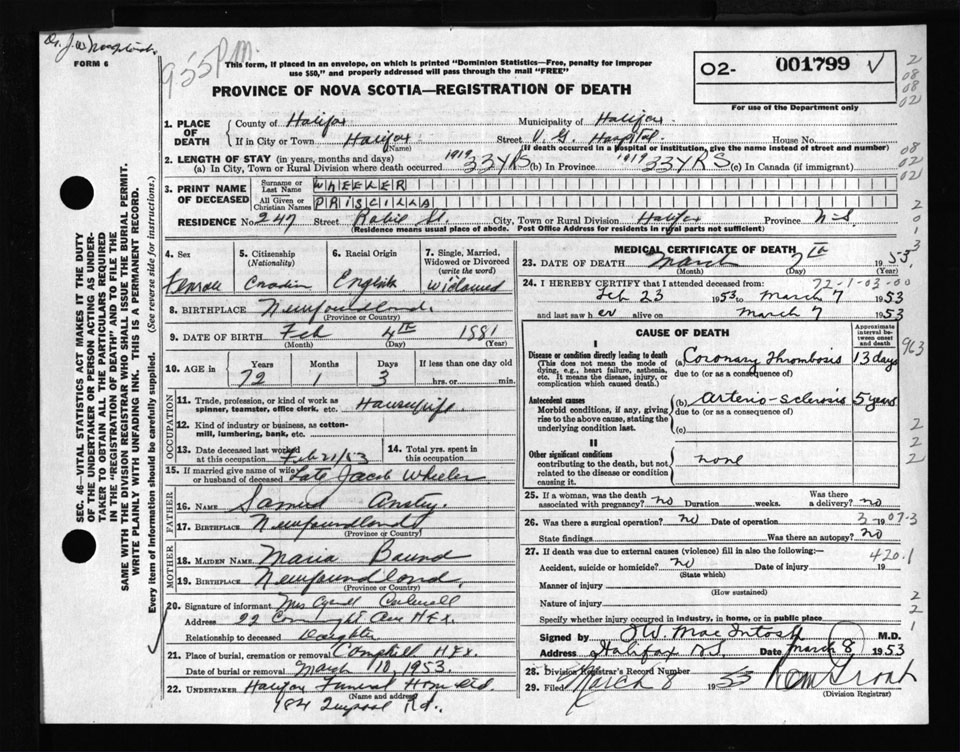 Dr. J.W.
FORM 6
9 55 P.M.
This form, if placed in an envelope, on which is printed "Dominion Statistics—Free, penalty for improper
use $50," and properly addressed will pass through the mail "FREE"
PROVINCE OF NOVA SCOTIA—REGISTRATION OF DEATH
02- 001799
For use of the Department only
1. PLACE OF DEATH
County of Halifax Municipality of Halifax
If in City or Town Halifax (Name) Street V. G. Hospital House No.
(If death occurred in a Hospital or institution, give the name instead of street and number)
2. LENGTH OF STAY (in years, months and days)
(a) In City, Town or Rural Division where death occurred 1919 33 YRS (b) In Province 1919 33 YRS (c) In Canada (if immigrant)
3. PRINT NAME OF DECEASED
Surname or Last Name WHEELER
All Given or Christian Names PRISCILLA
RESIDENCE No. 247 Street St. City, Town or Rural Division Halifax Province N-S
(Residence means usual place of abode. Post Office Address for residents in rural parts not sufficient)
4. Sex Female
5. Citizenship (Nationality)
6. Racial Origin English
7. Single, Married, Widowed or Divorced (write the word) Widowed
8. BIRTHPLACE Newfoundland (Province or Country)
9. DATE OF BIRTH Feb (Month) 4TH (Day) 1881 (Year)
10. AGE in Years 72 Months 1 Days 3 If less than one day old hrs. or min.
OCCUPATION
11. Trade, profession, or kind of work as spinner, teamster, office clerk, etc. Housewife
12. Kind of industry or business, as cotton-mill, lumbering, bank, etc.
13. Date deceased last worked at this occupation Feb 21/53
14. Total yrs. spent in this occupation
15. If married give name of wife or husband of deceased Late Jacob Wheeler
FATHER
16. NAME Samuel Ansty
17. BIRTHPLACE Newfoundland (Province or Country)
MOTHER
18. MAIDEN NAME Maria Bound
19. BIRTHPLACE Newfoundland (Province or Country)
20. Signature of informant Mrs Cyril
Address 22 Ave Hfx.
Relationship to deceased Daughter
21. Place of burial, cremation or removal Hfx.
Date of burial or removal March 10, 1953.
22. UNDERTAKER Halifax Funeral Home Ltd.
(Name and address)
Rd.
MEDICAL CERTIFICATE OF DEATH
23. DATE OF DEATH March (Month) 7th (Day) 1953 (Year)
72-1-03-00
24. I HEREBY CERTIFY that I attended deceased from:
Feb 23 1953 to March 7 1953
and last saw her alive on March 7 1953
CAUSE OF DEATH
Approximate interval between onset and death
I
Disease or condition directly leading to death
(This does not mean the mode of dying, e.g., heart failure, asthenia, etc. It means the disease, injury, or complication which caused death.)
(a) Coronary Thrombosis 13 days
due to (or as a consequence of)
Antecedent causes
Morbid conditions, if any, giving rise to the above cause, stating the underlying condition last.
(b) Arterio-sclerosis 5 years
due to (or as a consequence of)
(c)
II
Other significant conditions
contributing to the death, but not related to the disease or condition causing it.
none
25. If a woman, was the death associated with pregnancy? no Duration weeks. Was there a delivery? no
26. Was there a surgical operation? no Date of operation 19
State findings Was there an autopsy? no
27. If death was due to external causes (violence) fill in also the following:—
420.1
Accident, suicide or homicide? no (State which) Date of injury 19
Manner of injury (How sustained)
Nature of injury
Specify whether injury occurred in industry, in home, or in public place
Signed by J.W. MacIntosh M.D.
Address Halifax N.S. Date March 8 1953
28. Division Registrar's Record Number
29. Filed March 8 1953
(Division Registrar)
SEC. 46—VITAL STATISTICS ACT MAKES IT THE DUTY
OF THE UNDERTAKER OR PERSON ACTING AS UNDER-
TAKER TO OBTAIN ALL THE PARTICULARS REQUIRED
IN THE "REGISTRATION OF DEATH" AND TO FILE THE
SAME WITH THE DIVISION REGISTRAR WHO SHALL ISSUE THE BURIAL PERMIT.
WRITE PLAINLY WITH UNFADING INK. THIS IS A PERMANENT RECORD.
Every item of information should be carefully supplied. (See reverse side for instructions.)